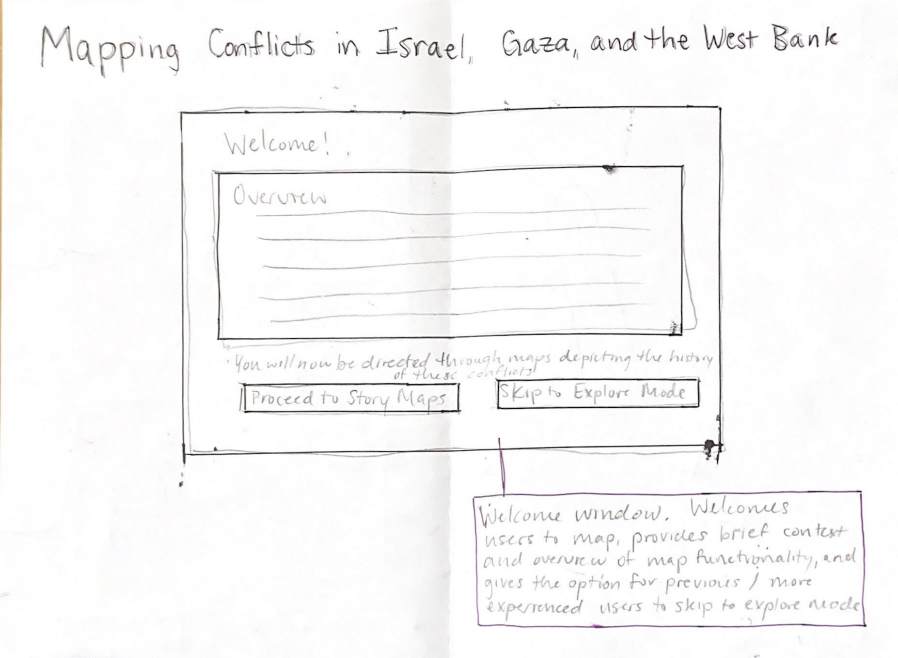 Mapping Conflicts in Israel, Gaza, and the West Bank
Welcome!
Overview
You will now be directed through maps depicting the history
of these conflicts!
Proceed to Story Maps
Skip to Explore Mode
Welcome window. Welcomes
users to map, provides brief context
and overview of map functionality, and
gives the option for previous / more
experienced users to skip to explore mode